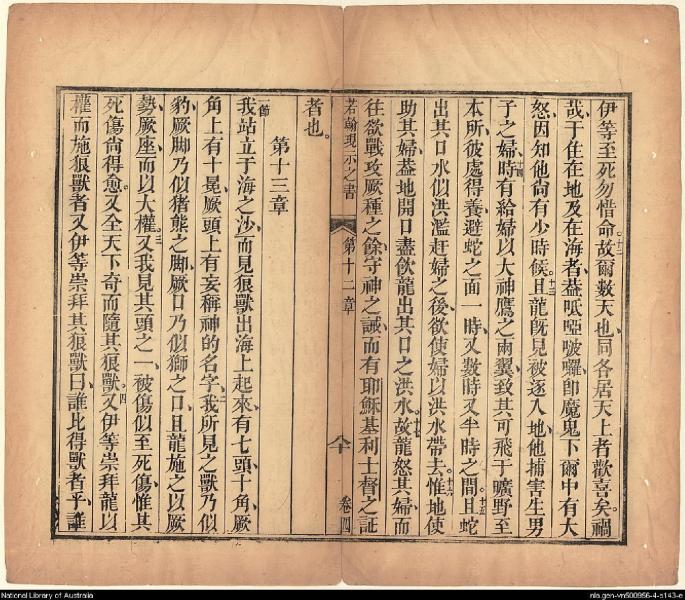 伊等至死勿惜命故爾數天也同各居天上者歡喜矣禍
哉于住在地及在海者葢呧啞啵囉即魔鬼下爾中有大
怒因知他尚有少時候十三且龍既見被逐入地他捕害生男
子之婦十四時有給婦以大神鷹之兩翼致其可飛于曠野至
本所彼處得養避蛇之面一時又數時又半時之間十五且蛇
出其口水似洪濫赶婦之後欲使婦以洪水帶去十六惟地使
助其婦葢地開口盡飲龍出其口之洪水十七故龍怒其婦而
往欲戰攻厥種之餘守神之誡而有耶穌基利士督之証
若翰現示之書 第十二章 卷四
者也
第十三章
一節
我站立于海之沙而見狠獸出海上起來有七頭十角厥
角上有十冕厥頭上有妄稱神的名字二我所見之獸乃似
豹厥脚乃似猪熊之脚厥口乃似獅之口且龍施之以厥
勢厥座而以大權三又我見其頭之一被傷似至死傷惟其
死傷尚得愈又全天下奇而隨其狠獸四又伊等崇拜龍以
權而施狠獸者又伊等崇拜其狠獸曰誰比得獸者乎誰
National Library of Australia
nla.gen-vn500956-4-s143-e